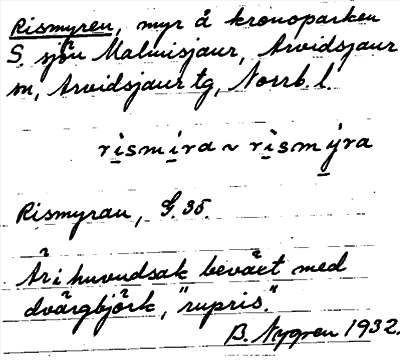 Rismyren, myr å kronoparken
S. sjön Malmisjaur, Arvidsjaur
sn, Arvidsjaur tg, Norrb. l.
rismira ~ rismýra
Rismyran, G. 35.
Är i huvudsak beväxt med
dvärgbjörk, "rupris".
B. Nygren 1932.